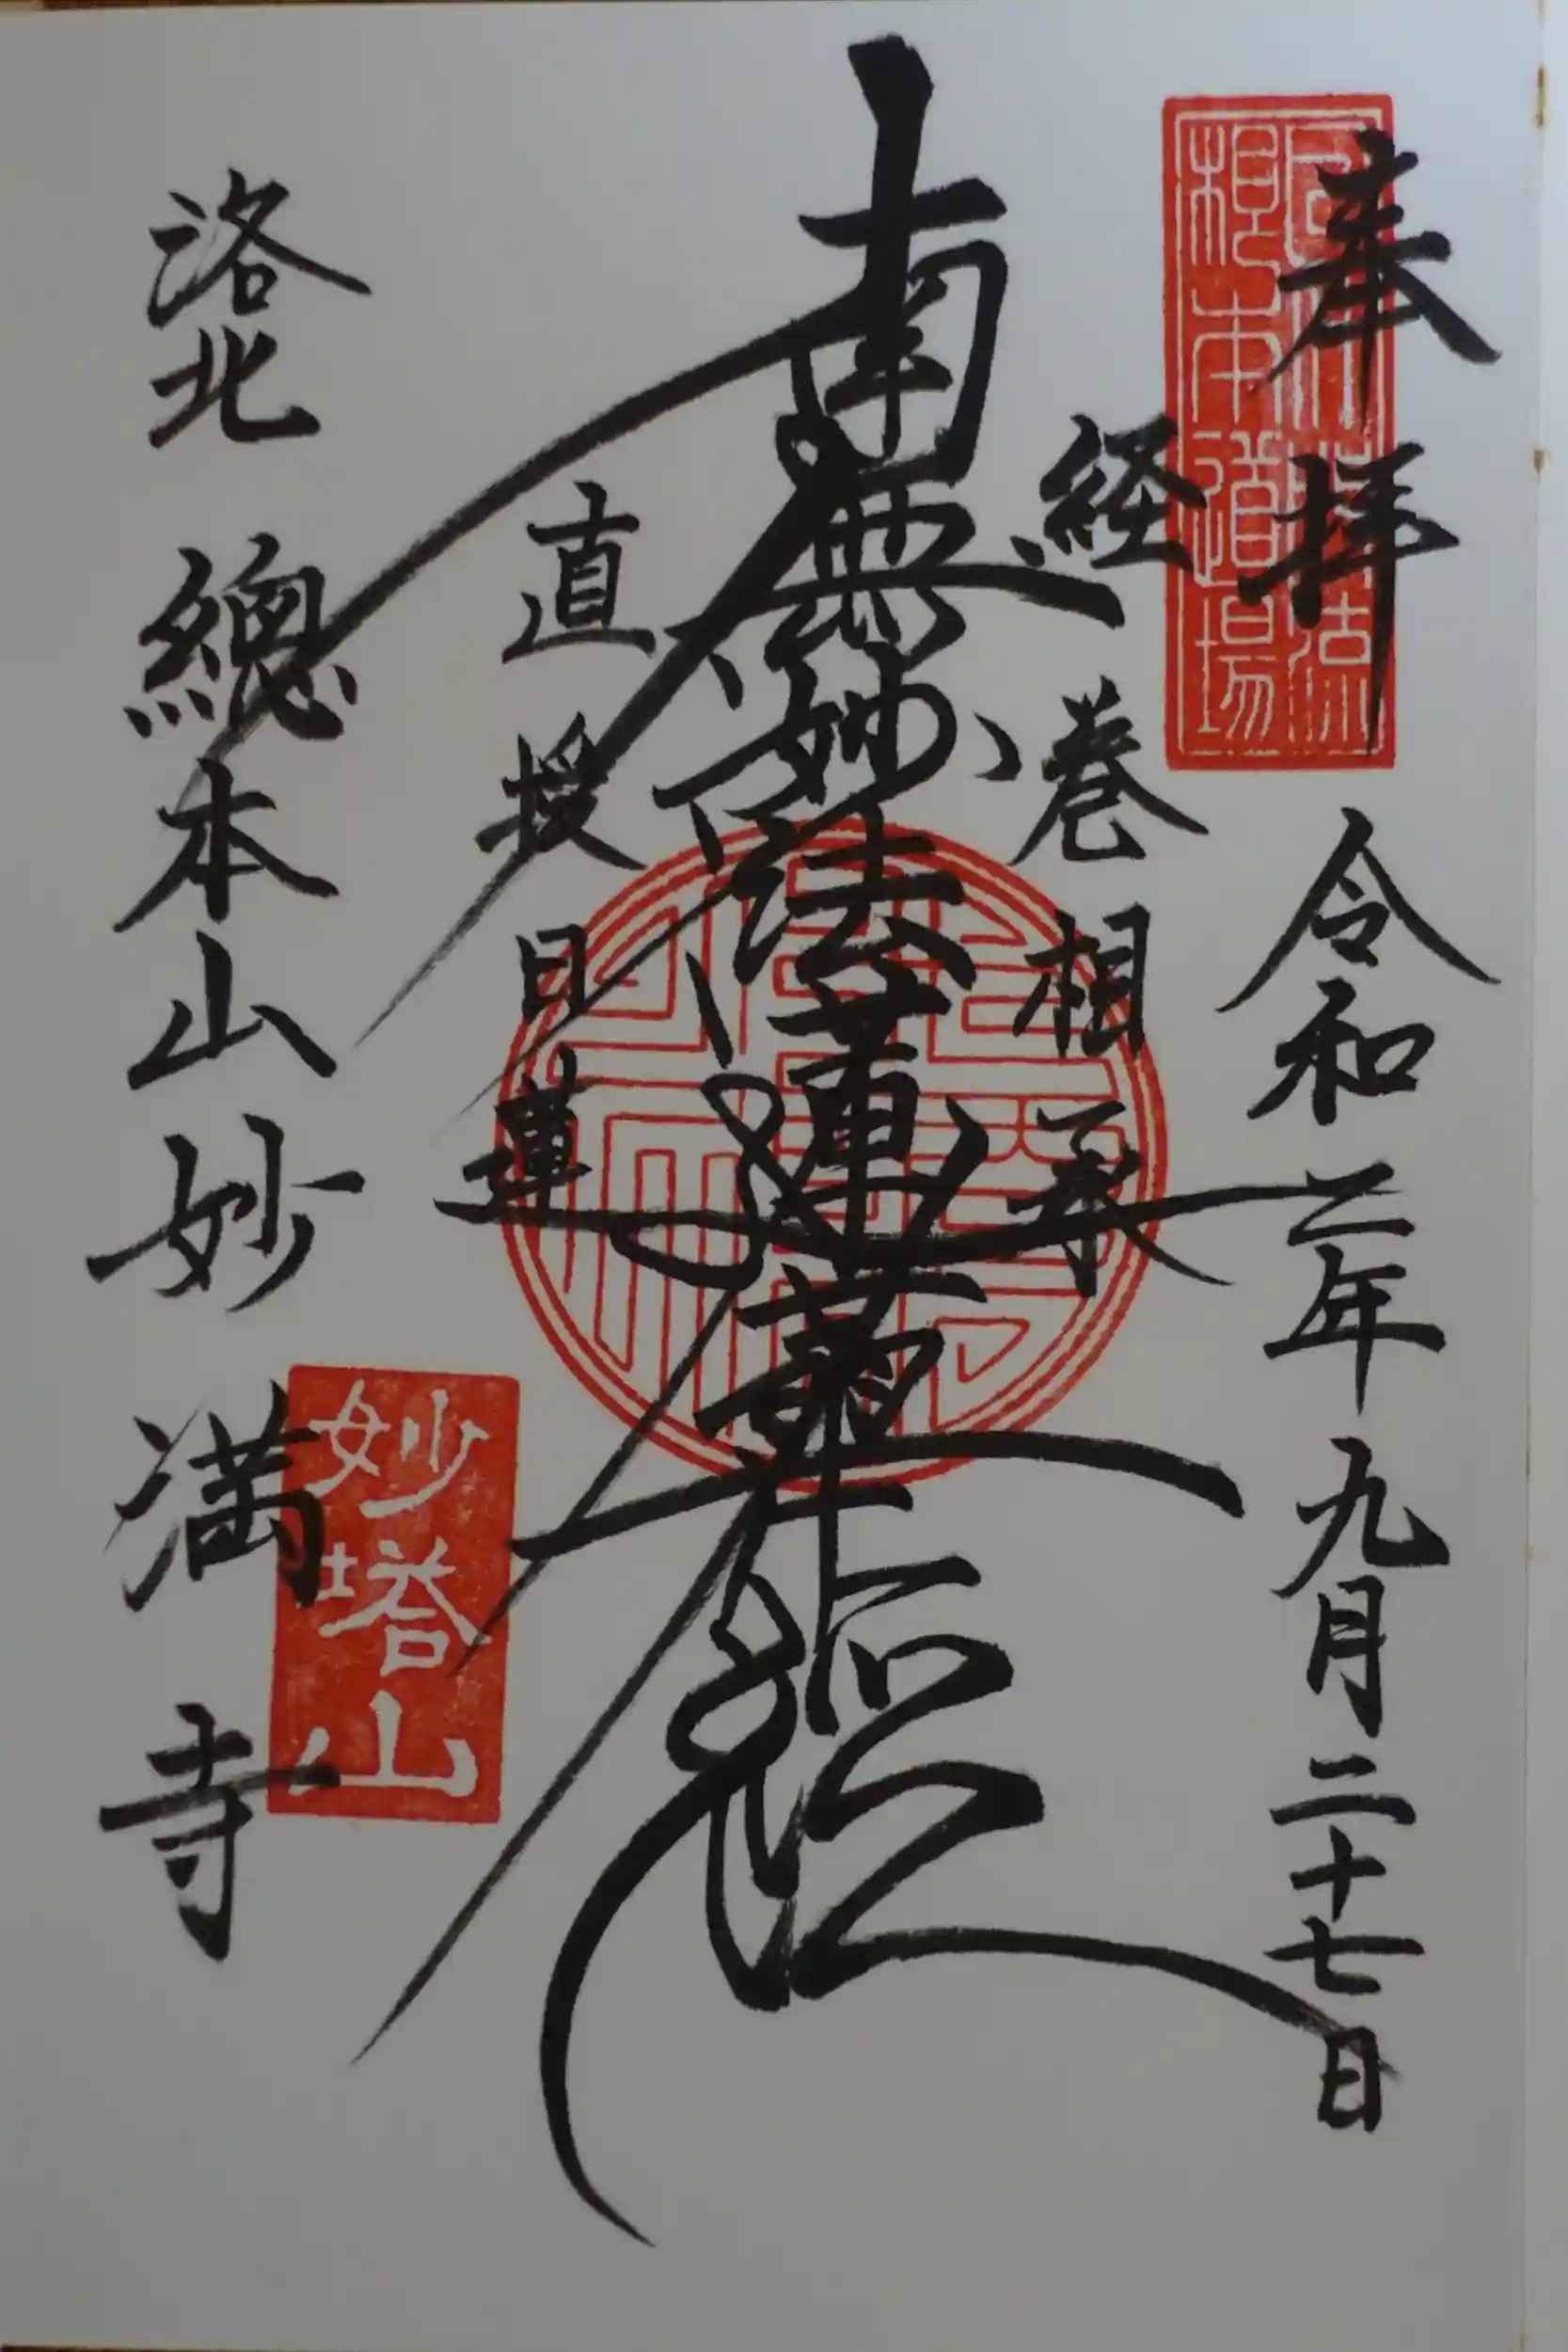 奉拝
令和二年九月二十七日
根本道場
経巻相承
南無妙法蓮華経
直授日蓮
洛北 總本山妙満寺
妙塔山